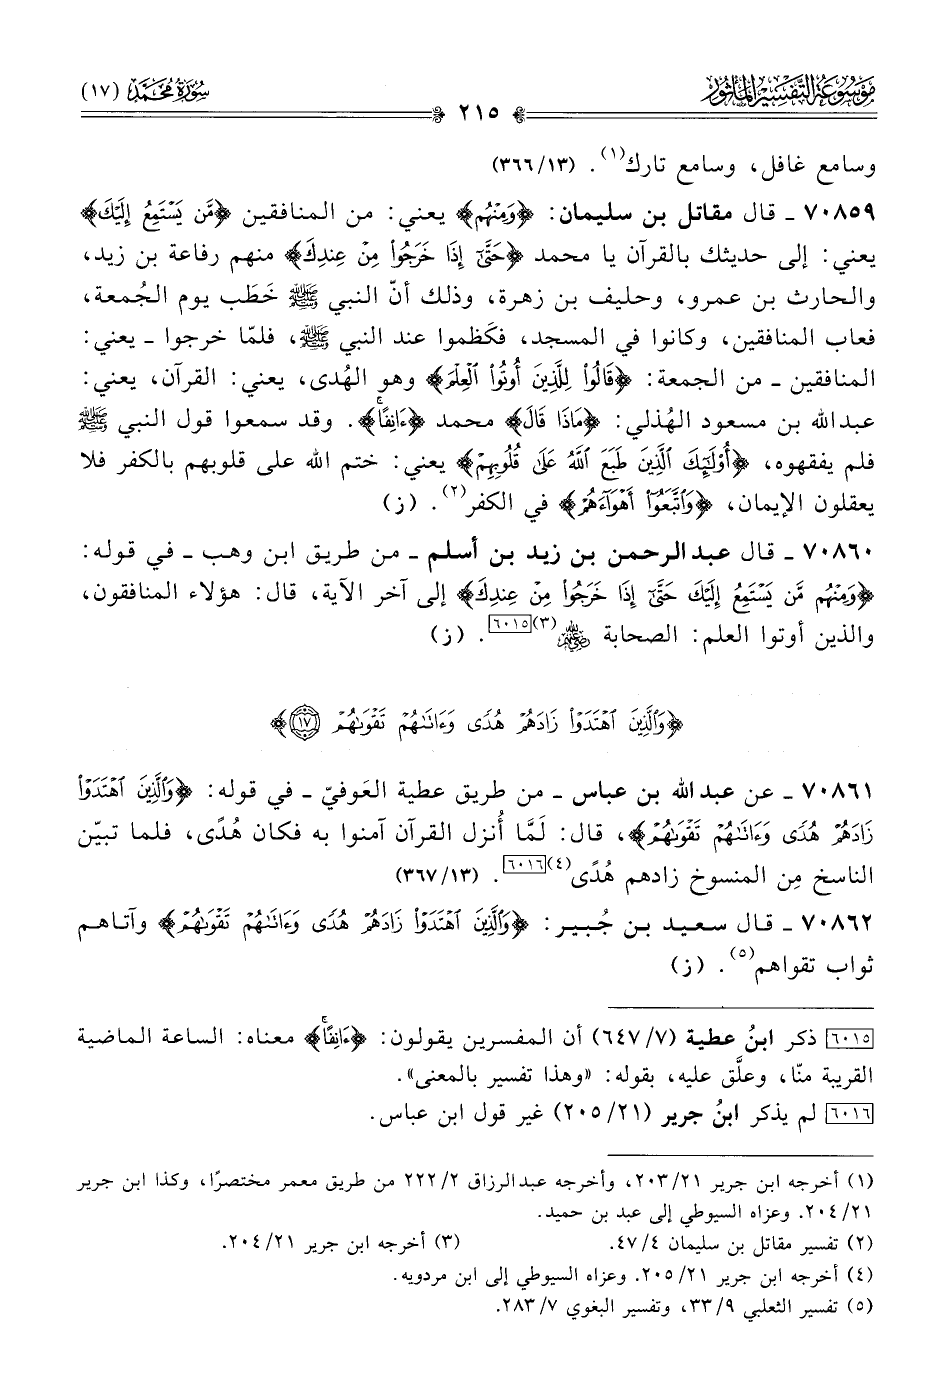 موسوعة التفسير المأثور
سورة محمد (١٧)
٢١٥
وسامع غافل، وسامع تارك(١). (١٣/ ٣٦٦)
٧٠٨٥٩ ـ قال مقاتل بن سليمان: ﴿وَمِنْهُم﴾ يعني: من المنافقين ﴿مَّن يَسْتَمِعُ إِلَيْكَ﴾
يعني: إلى حديثك بالقرآن يا محمد ﴿حَتَّىٰٓ إِذَا خَرَجُوا۟ مِنْ عِندِكَ﴾ منهم رفاعة بن زيد،
والحارث بن عمرو، وحليف بن زهرة، وذلك أنّ النبي ﷺ خَطَب يوم الجُمعة،
فعاب المنافقين، وكانوا في المسجد، فكَظموا عند النبي ﷺ، فلمّا خرجوا ـ يعني:
المنافقين ـ من الجمعة: ﴿قَالُوا۟ لِلَّذِينَ أُوتُوا۟ ٱلْعِلْمَ﴾ وهو الهُدى، يعني: القرآن، يعني:
عبدالله بن مسعود الهُذلي: ﴿مَاذَا قَالَ﴾ محمد ﴿ءَانِفًا ۚ﴾. وقد سمعوا قول النبي ﷺ
فلم يفقهوه، ﴿أُو۟لَٰٓئِكَ ٱلَّذِينَ طَبَعَ ٱللَّهُ عَلَىٰ قُلُوبِهِمْ﴾ يعني: ختم الله على قلوبهم بالكفر فلا
يعقلون الإيمان، ﴿وَٱتَّبَعُوٓا۟ أَهْوَآءَهُمْ﴾ في الكفر(٢). (ز)
٧٠٨٦٠ ـ قال عبدالرحمن بن زيد بن أسلم ـ من طريق ابن وهب ـ في قوله:
﴿وَمِنْهُم مَّن يَسْتَمِعُ إِلَيْكَ حَتَّىٰٓ إِذَا خَرَجُوا۟ مِنْ عِندِكَ﴾ إلى آخر الآية، قال: هؤلاء المنافقون،
والذين أوتوا العلم: الصحابة رضي الله عنهم(٣)[٦٠١٥]. (ز)
﴿وَٱلَّذِينَ ٱهْتَدَوْا۟ زَادَهُمْ هُدًى وَءَاتَىٰهُمْ تَقْوَىٰهُمْ ۝١٧﴾
٧٠٨٦١ ـ عن عبدالله بن عباس ـ من طريق عطية العَوفيّ ـ في قوله: ﴿وَٱلَّذِينَ ٱهْتَدَوْا۟
زَادَهُمْ هُدًى وَءَاتَىٰهُمْ تَقْوَىٰهُمْ﴾، قال: لَمَّا أُنزل القرآن آمنوا به فكان هُدًى، فلما تبيّن
الناسخ مِن المنسوخ زادهم هُدًى(٤)[٦٠١٦]. (١٣/ ٣٦٧)
٧٠٨٦٢ ـ قال سعيد بن جُبير: ﴿وَٱلَّذِينَ ٱهْتَدَوْا۟ زَادَهُمْ هُدًى وَءَاتَىٰهُمْ تَقْوَىٰهُمْ﴾ وآتاهم
ثواب تقواهم(٥). (ز)
[٦٠١٥] ذكر ابنُ عطية (٧/ ٦٤٧) أن المفسرين يقولون: ﴿ءَانِفًا ۚ﴾ معناه: الساعة الماضية
القريبة منّا، وعلَّق عليه، بقوله: «وهذا تفسير بالمعنى».
[٦٠١٦] لم يذكر ابنُ جرير (٢١/ ٢٠٥) غير قول ابن عباس.
(١) أخرجه ابن جرير ٢١/ ٢٠٣، وأخرجه عبدالرزاق ٢/ ٢٢٢ من طريق معمر مختصرًا، وكذا ابن جرير
٢١/ ٢٠٤. وعزاه السيوطي إلى عبد بن حميد.
(٢) تفسير مقاتل بن سليمان ٤/ ٤٧. (٣) أخرجه ابن جرير ٢١/ ٢٠٤.
(٤) أخرجه ابن جرير ٢١/ ٢٠٥. وعزاه السيوطي إلى ابن مردويه.
(٥) تفسير الثعلبي ٩/ ٣٣، وتفسير البغوي ٧/ ٢٨٣.